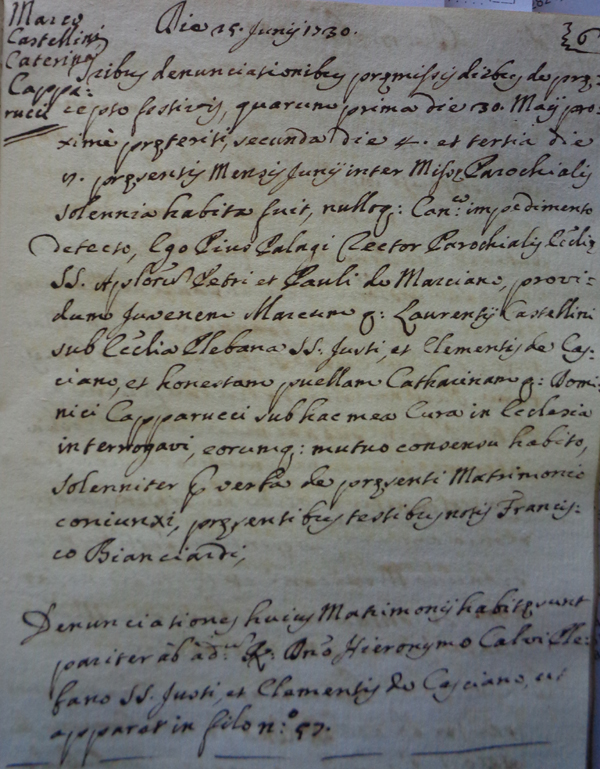 Marco
Castellini
Caterina
Cappa:
rucci
Die 25. Junij 1730.
36
Tribus denunciationibus pręmissis diebus de prę:
cepto festivis, quarum prima die 30. Maij pro:
ximè pręteriti, secunda die 4. et tertia die
pręsentis Mensis Junij inter Missę Parochialis
solennia habita fuit, nulloq: Can:co impedimento
detecto, Ego Pius Palagi Rector Parochialis Ecclię
SS. Aplorũ Petri et Pauli de Marciano, provi:
dum Juvenem Marcum q: Laurentij Castellini
sub Ecclia Plebana SS: Justi, et Clementis de Cas:
ciano, et honestam puellam Catharinam q: Domi:
nici Capparucci sub hac mea Cura in Eclesia
interrogavi, eorumq: mutuo consensu habito,
solenniter p verba de pręsenti Matrimonio
coniunxi, pręsentibus testibus notis Francis:
co Bianciardi,
Denunciationes huius Matrimonij habitę sunt
pariter ab ad: R: Dno Hieronymo Calvi Ple:
bano SS. Justi, et Clementis de Casciano, ut
apparet in filo n:o 57.